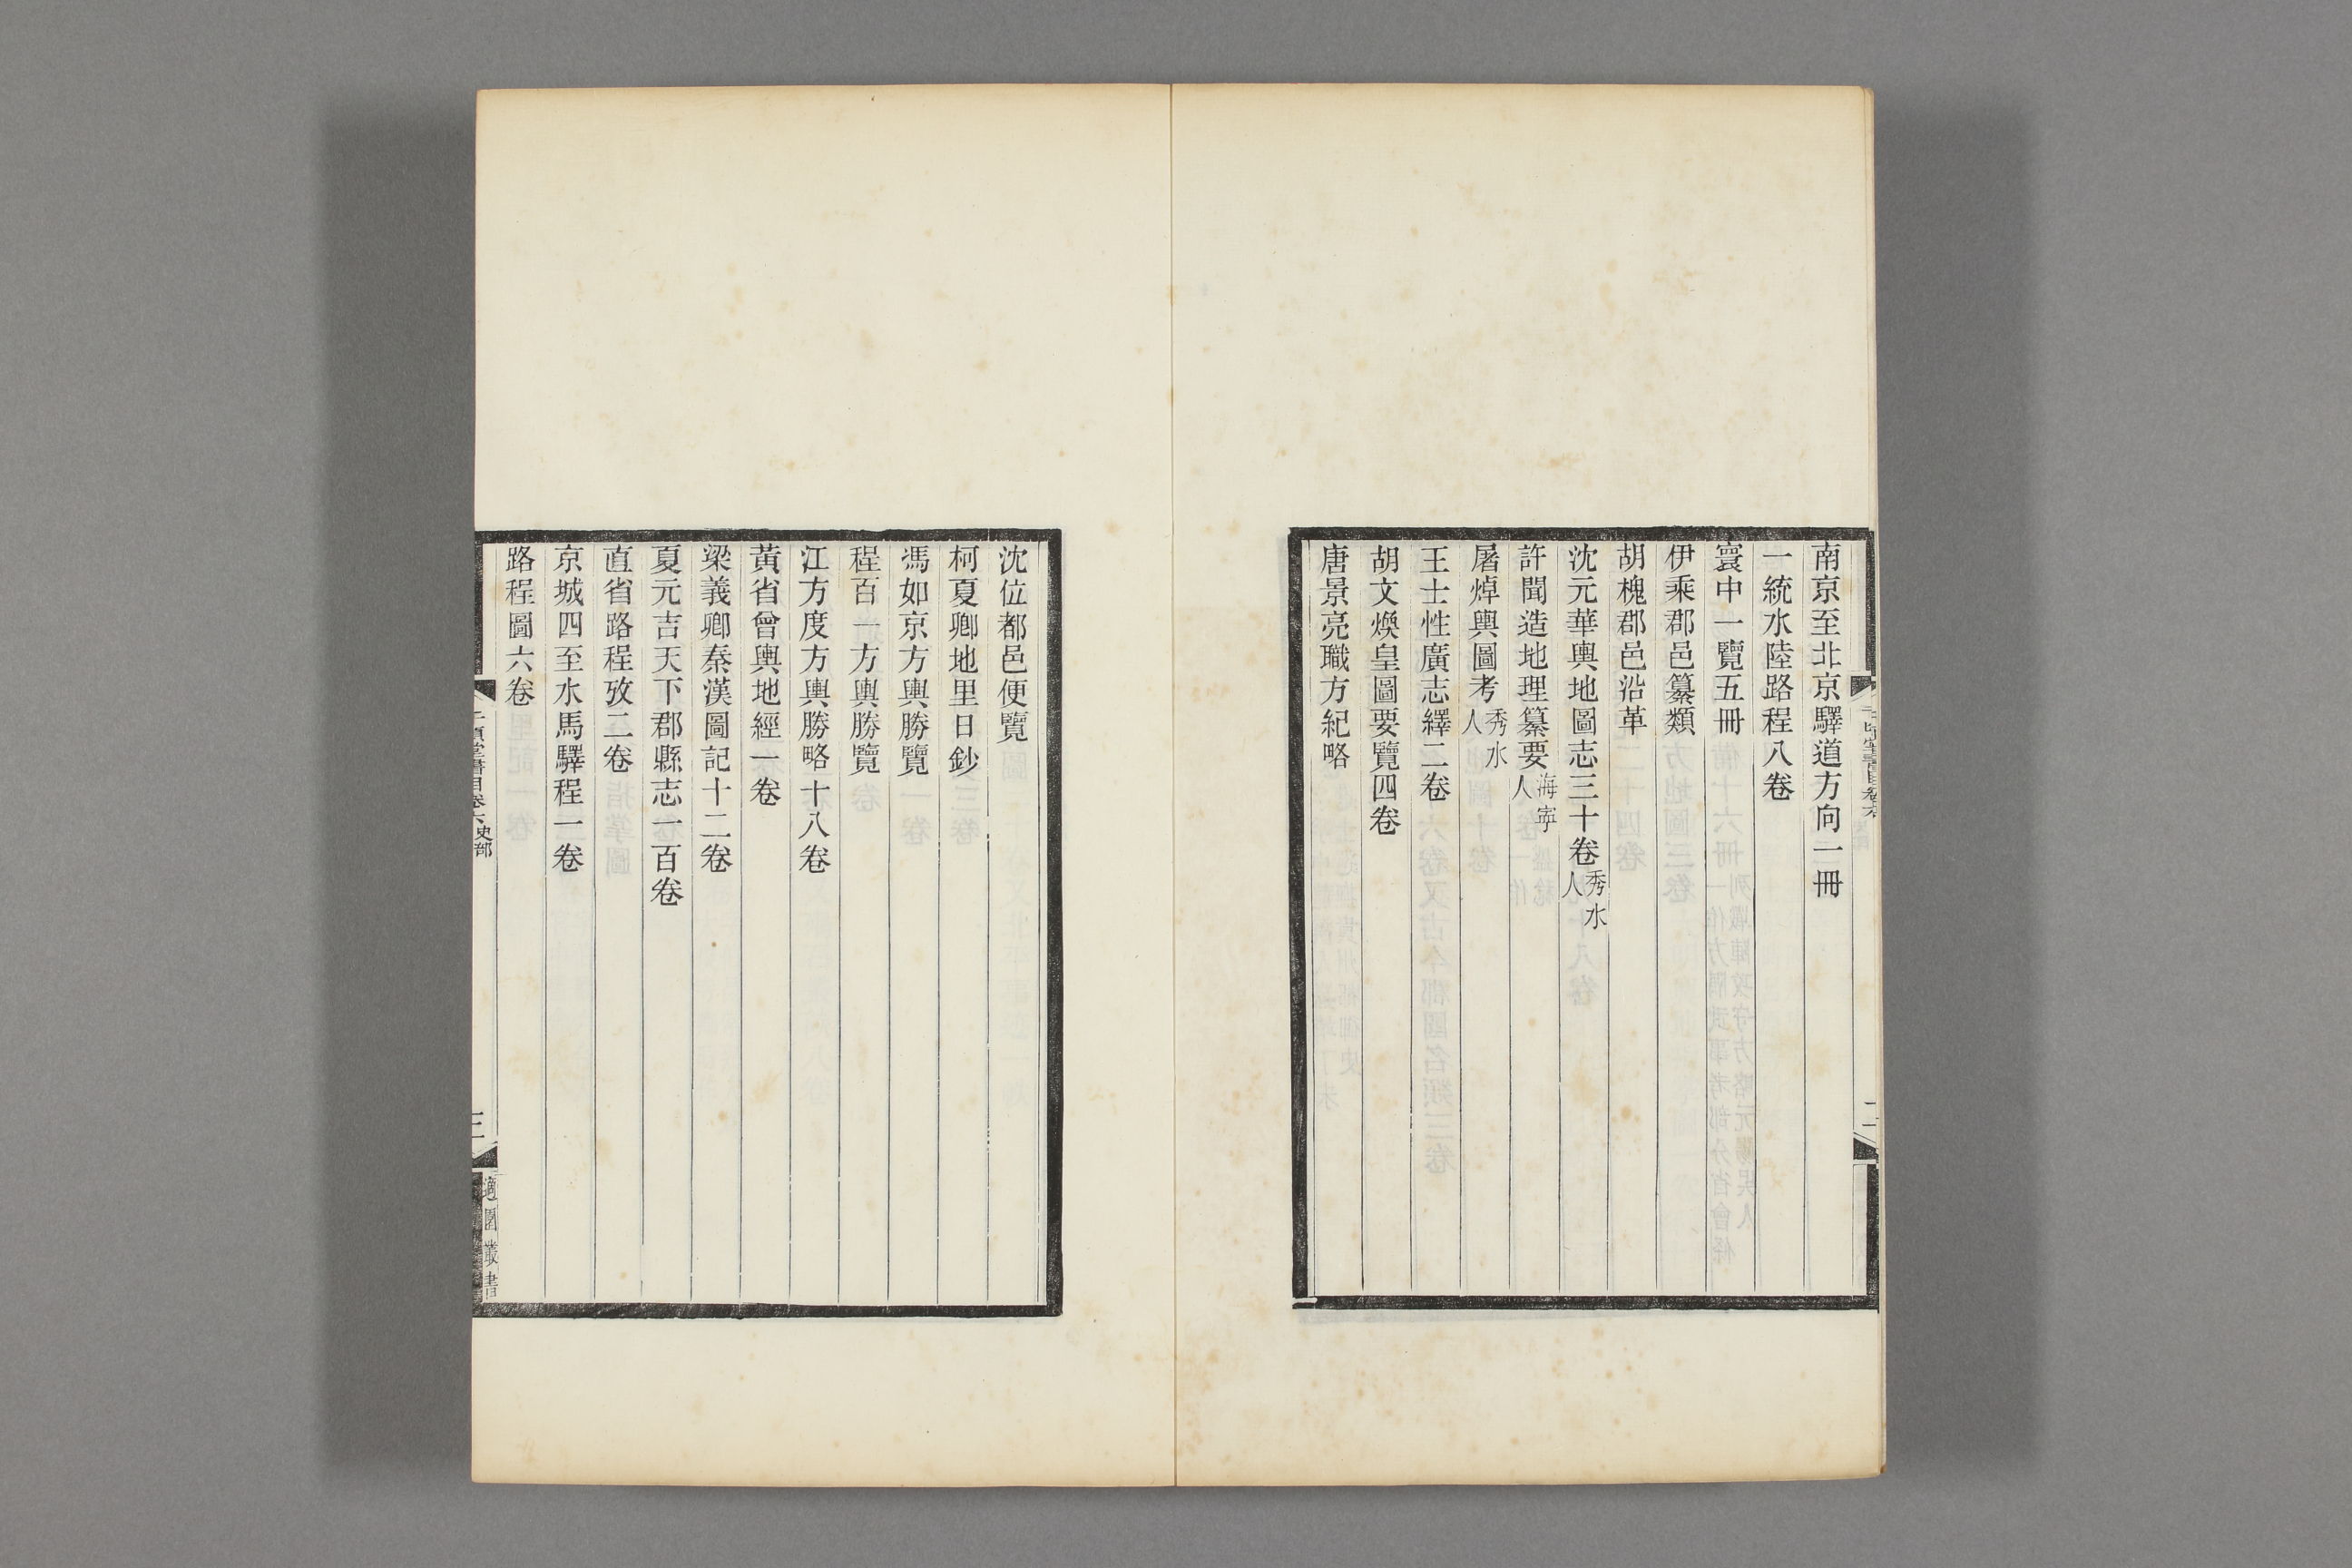 南京至北京驛道方向一冊
一統水陸路程八卷
寰中一覽五冊
伊乘郡邑纂類
胡槐郡邑沿革
沈元華輿地圖志三十卷秀水人
許聞造地理纂要海寧人
屠焯輿圖考秀水人
王士性廣志繹二卷
胡文煥皇圖要覽四卷
唐景亮職方紀略
沈位都邑便覽
柯夏卿地里日鈔
馮如京方輿勝覽
程百一方輿勝覽
江方度方輿勝略十八卷
黃省曾輿地經一卷
梁義卿秦漢圖記十二卷
夏元吉天下郡縣志一百卷
直省路程攷二卷
京城四至水馬驛程一卷
路程圖六卷
千頃堂書目卷六史部
三
適園叢書